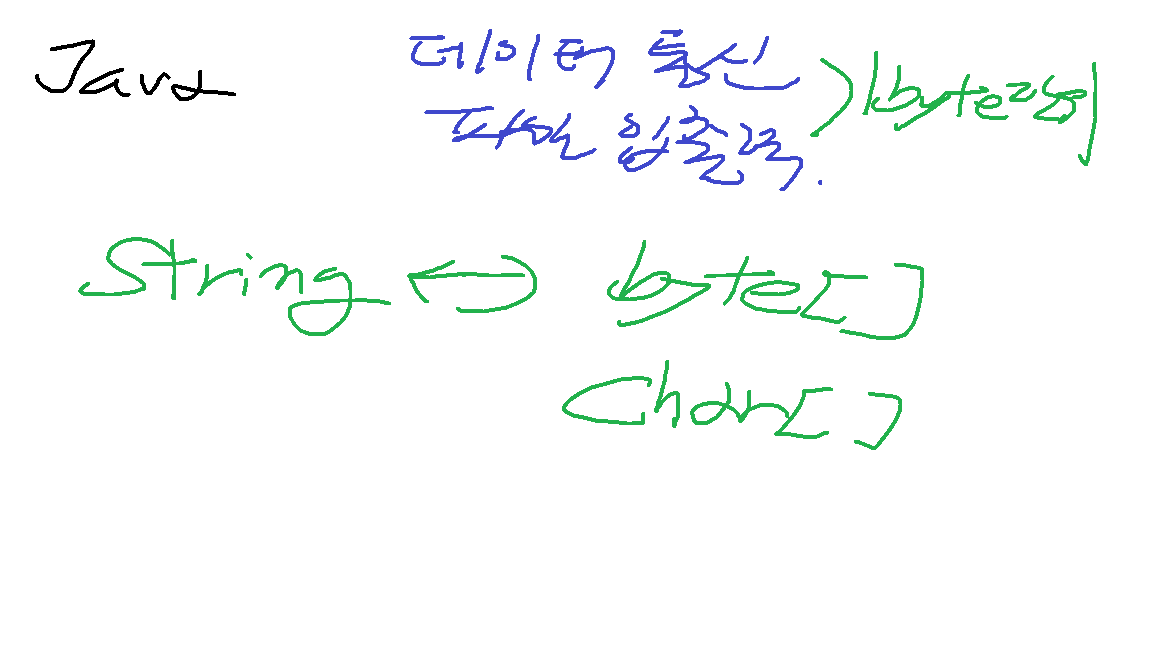 Java 데이터 통신
파일 입출력. ) byte
String ↔ byte[]
char[]